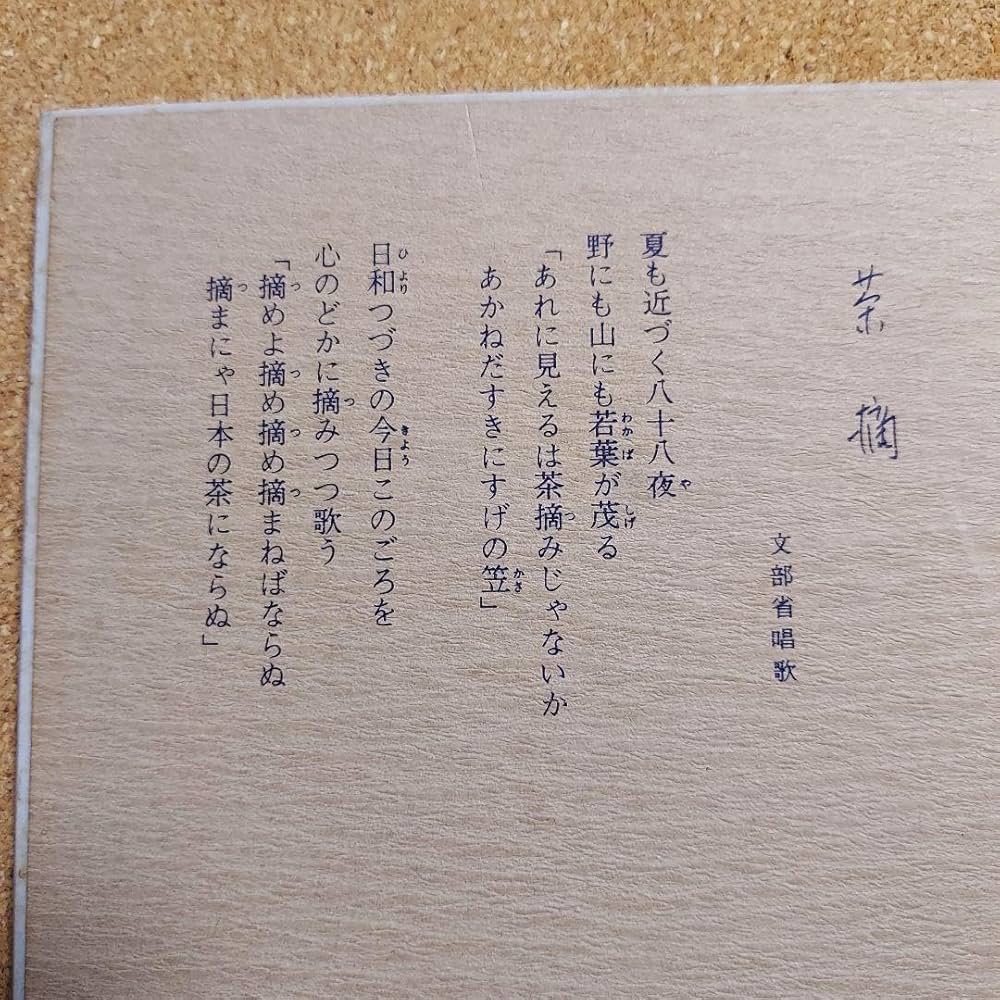 茶摘
文部省唱歌
夏も近づく八十八夜
野にも山にも若葉が茂る
「あれに見えるは茶摘みじゃないか
あかねだすきにすげの笠」
日和つづきの今日このごろを
心のどかに摘みつつ歌う
「摘めよ摘め摘め摘まねばならぬ
摘まにゃ日本の茶にならぬ」